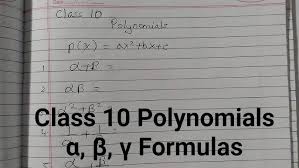 Class 10
Polynomials
p(x) = ax²+bx+c
1. α+β =
2. αβ =
α²+β²
4. 1/α + 1/β
Class 10 Polynomials
α, β, γ Formulas